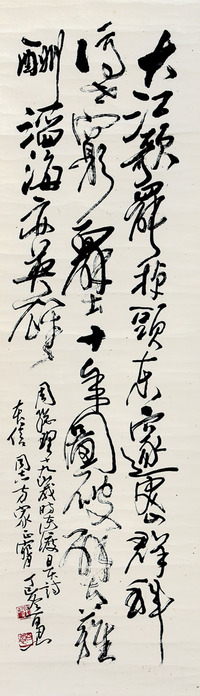 大江歌罷掉頭東邃密群科
濟世窮面壁十年圖破壁難
酬蹈海亦英雄
周總理十九歲時東渡詩
同志方家正